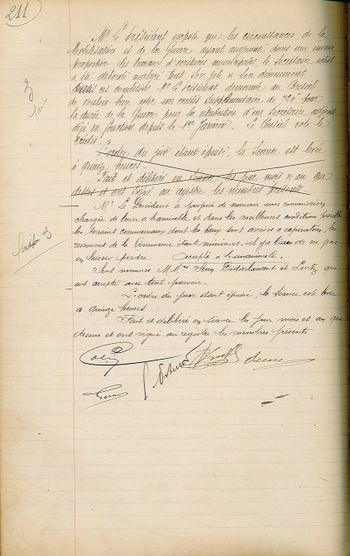 211
Mr Le Président expose que les circonstances de la
Mobilisation et de la Guerre ayant augmenté dans une
proportion les travaux d'écritures municipales, le Secrétaire
a été débordé malgré tout son zèle & son dévouement.
Dans ces conditions Mr Le Président demande au Conseil
de vouloir bien voter un crédit supplémentaire de pour
la durée de la Guerre pour la d'un Secrétaire adjoint
déjà en fonctions depuis le 1er Janvier. Le Conseil vote le
Crédit.
L'ordre du jour étant épuisé, la séance est levée
à quinze heures
Fait et délibéré en séance les jour, mois et an que
dessus et ont signé au registre les membres présents
Mr Le Président à propose de nommer une commission
chargée de louer à l'amiable et dans les meilleures conditions possible
les terrains communaux dont les baux sont arrivés à expiration, les
ressources de la Commune étant minimes, il y a lieu de ne pas
en laisser perdre. Accepté à l'unanimité.
Sont nommés M.M. et qui
ont accepté avec tout pouvoir.
L'ordre du jour étant épuisé la séance est levée
à quinze heures
Fait et délibéré en séance les jour mois et an que
dessus et ont signé au registre les membres présents